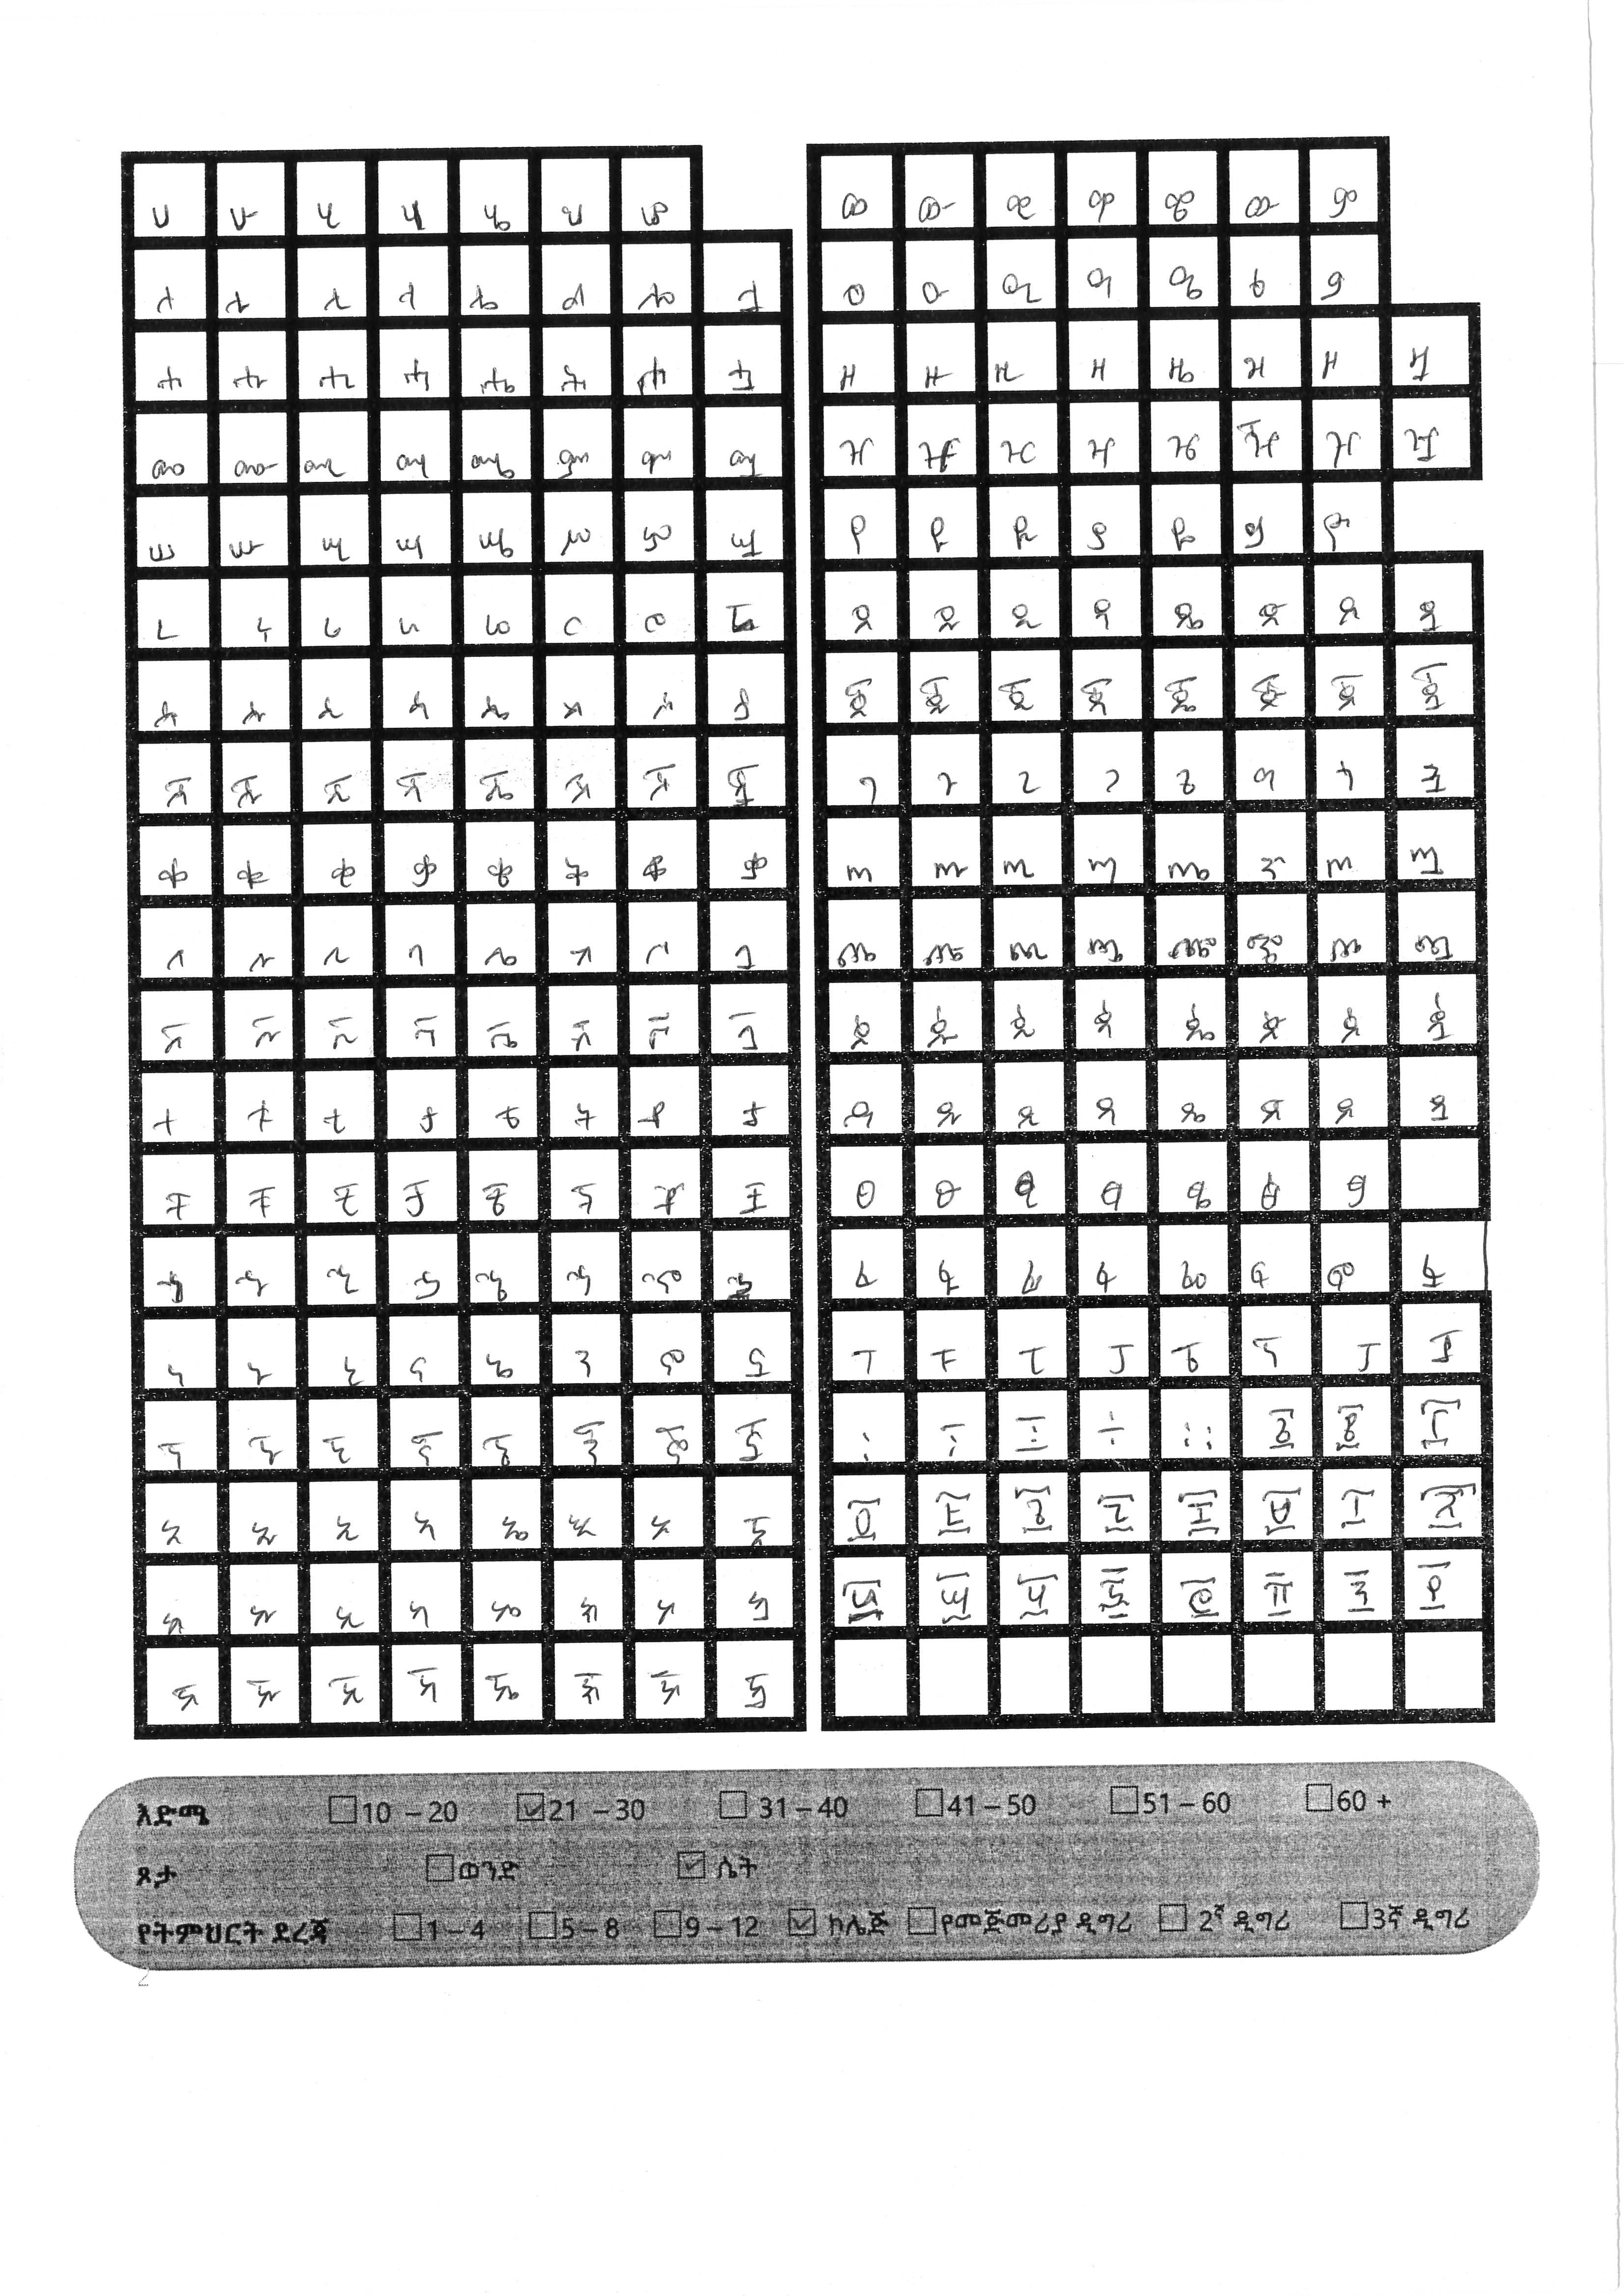 ሀ ሁ ሂ ሃ ሄ ህ ሆ
ለ ሉ ሊ ላ ሌ ል ሎ ሏ
ሐ ሑ ሒ ሓ ሔ ሕ ሖ ሗ
መ ሙ ሚ ማ ሜ ም ሞ ሟ
ሠ ሡ ሢ ሣ ሤ ሥ ሦ ሧ
ረ ሩ ሪ ራ ሬ ር ሮ ሯ
ሰ ሱ ሲ ሳ ሴ ስ ሶ ሷ
ሸ ሹ ሺ ሻ ሼ ሽ ሾ ሿ
ቀ ቁ ቂ ቃ ቄ ቅ ቆ ቋ
በ ቡ ቢ ባ ቤ ብ ቦ ቧ
ቨ ቩ ቪ ቫ ቬ ቭ ቮ ቯ
ተ ቱ ቲ ታ ቴ ት ቶ ቷ
ቸ ቹ ቺ ቻ ቼ ች ቾ ቿ
ኀ ኁ ኂ ኃ ኄ ኅ ኆ ኋ
ነ ኑ ኒ ና ኔ ን ኖ ኗ
ኘ ኙ ኚ ኛ ኜ ኝ ኞ ኟ
አ ኡ ኢ ኣ ኤ እ ኦ ኧ
ከ ኩ ኪ ካ ኬ ክ ኮ ኳ
ኸ ኹ ኺ ኻ ኼ ኽ ኾ ዃ
ወ ዉ ዊ ዋ ዌ ው ዎ
ዐ ዑ ዒ ዓ ዔ ዕ ዖ
ዘ ዙ ዚ ዛ ዜ ዝ ዞ ዟ
ዠ ዡ ዢ ዣ ዤ ዥ ዦ ዧ
የ ዩ ዪ ያ ዬ ይ ዮ
ደ ዱ ዲ ዳ ዴ ድ ዶ ዷ
ጀ ጁ ጂ ጃ ጄ ጅ ጆ ጇ
ገ ጉ ጊ ጋ ጌ ግ ጎ ጓ
ጠ ጡ ጢ ጣ ጤ ጥ ጦ ጧ
ጨ ጩ ጪ ጫ ጬ ጭ ጮ ጯ
ጰ ጱ ጲ ጳ ጴ ጵ ጶ ጷ
ጸ ጹ ጺ ጻ ጼ ጽ ጾ ጿ
ፀ ፁ ፂ ፃ ፄ ፅ ፆ
ፈ ፉ ፊ ፋ ፌ ፍ ፎ ፏ
ፐ ፑ ፒ ፓ ፔ ፕ ፖ ፗ
፡ ፣ ፤ ÷ ። ፩ ፪ ፫
፬ ፭ ፮ ፯ ፰ ፱ ፲ ፳
፴ ፵ ፶ ፷ ፸ ፹ ፺ ፻
እድሜ 10 – 20 21 – 30 31 – 40 41 – 50 51 – 60 60 +
ጾታ ወንድ ሴት
የትምህርት ደረጃ 1 – 4 5 – 8 9 – 12 ኮሌጅ የመጀመሪያ ዲግሪ 2ኛ ዲግሪ 3ኛ ዲግሪ